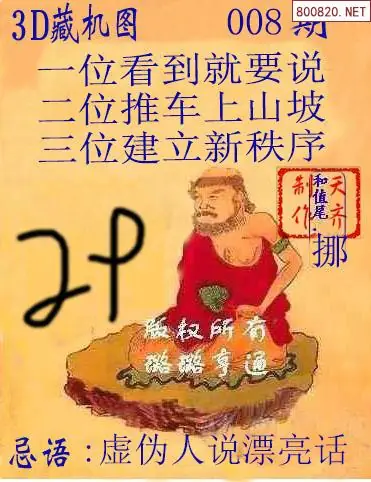 800820.NET
3D藏机图 008期
一位看到就要说
二位推车上山坡
三位建立新秩序
天齐
和值尾:
制作
挪
29
版权所有
璐璐亨通
忌语:虚伪人说漂亮话